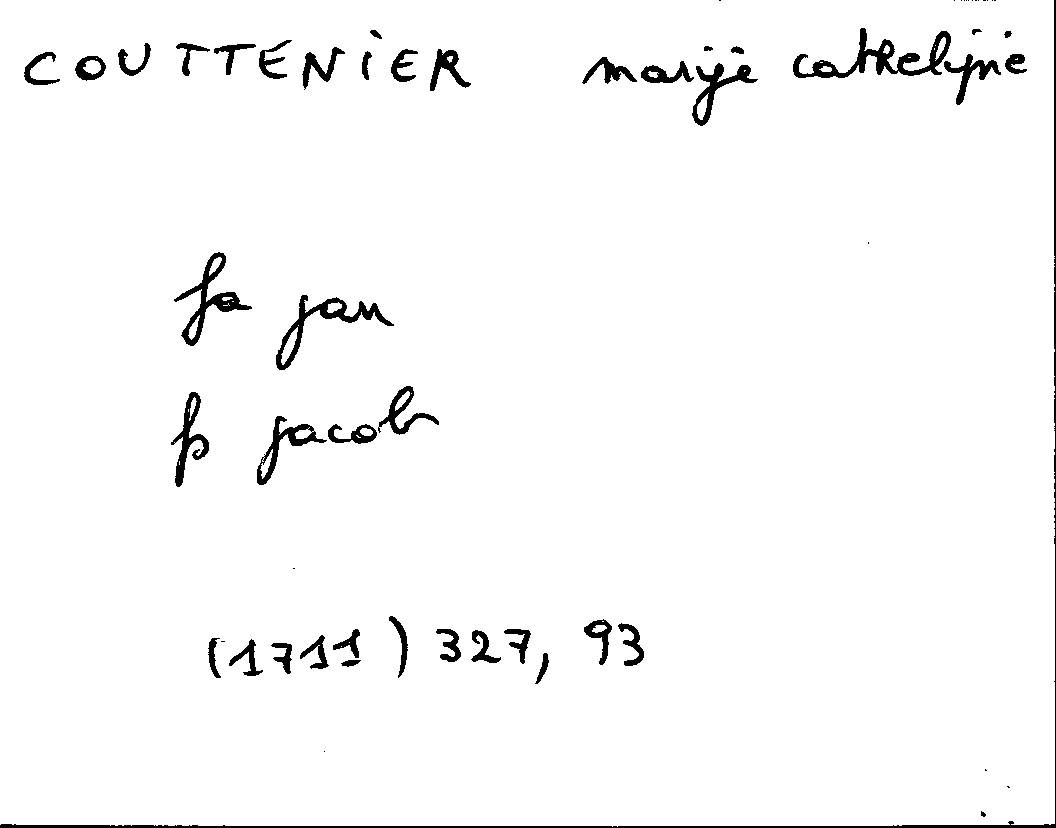 COUTTENIER marije cathelijne
fa jan
p jacob
(1711) 327, 93